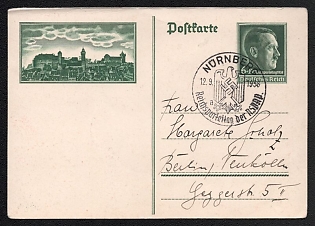 Postkarte
Deutsches Reich
NÜRNBERG
12.9.1938
Reichsparteitag der NSDAP.
Frau
Margarete
Berlin, Neukölln
5 II